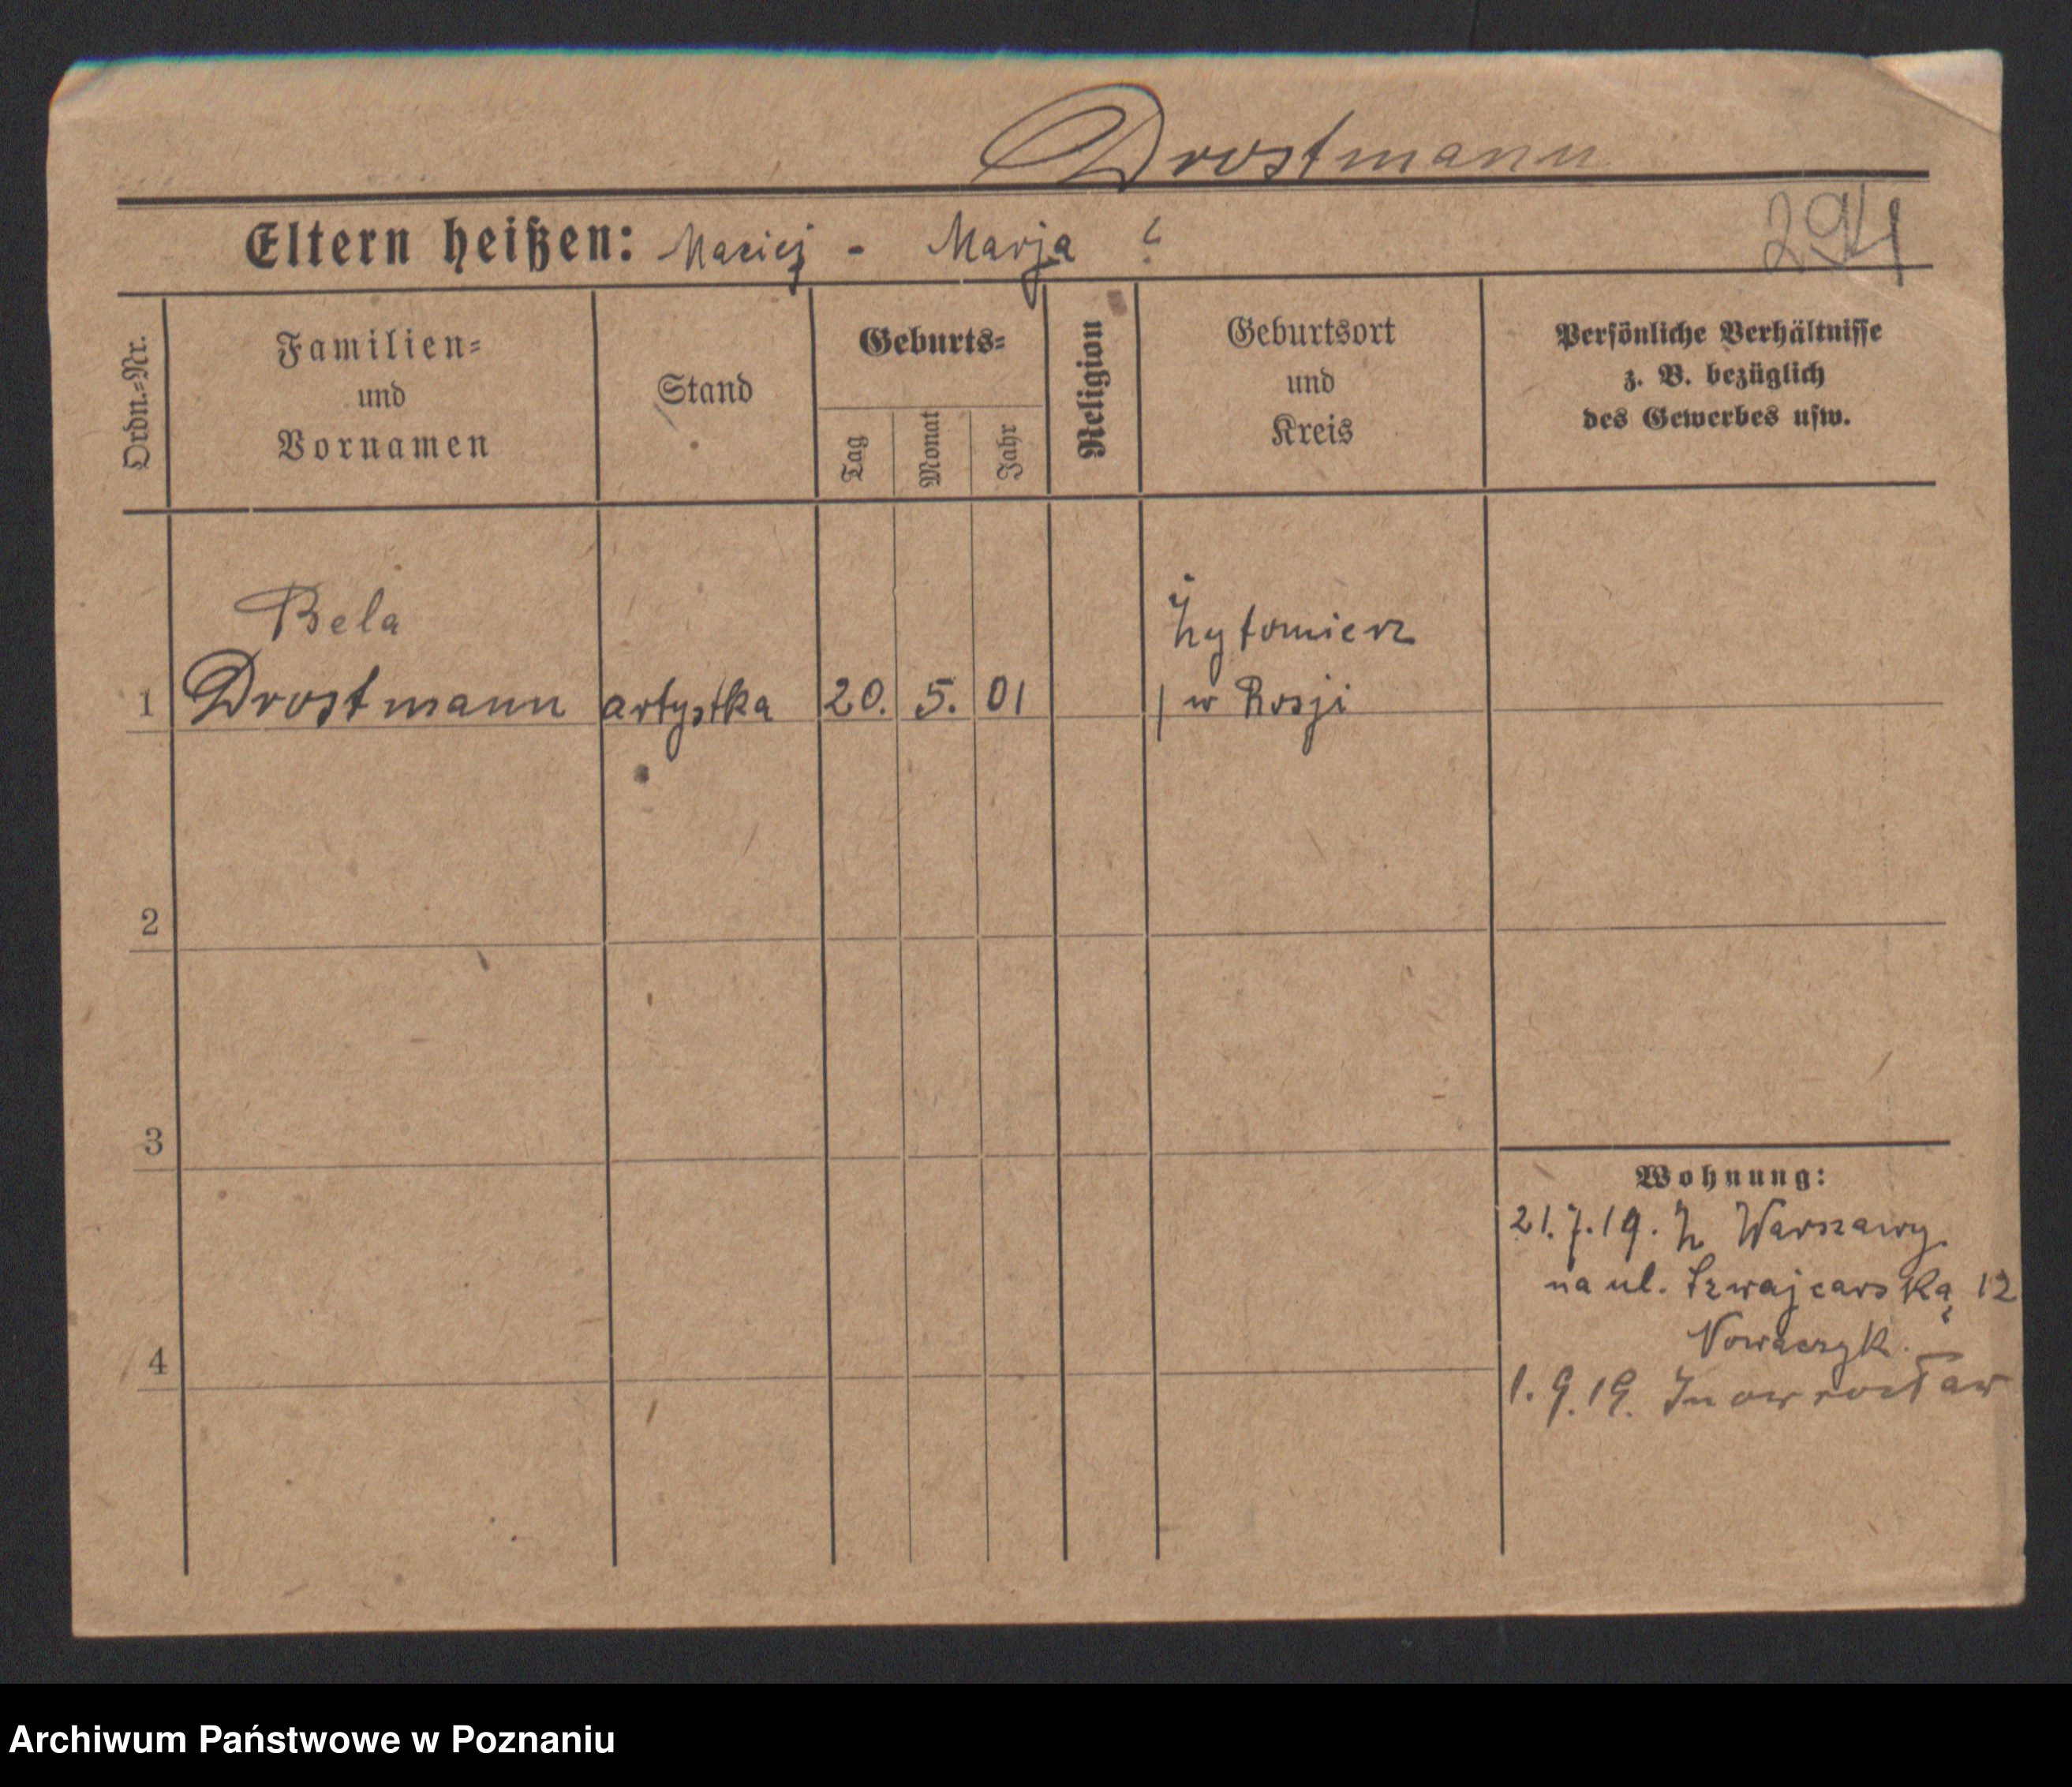 Drostmann
Eltern heißen: Maciej - Marja ?
294
Ordn.-Nr.
Familien-
und
Vornamen
Stand
Geburts-
Tag
Monat
Jahr
Religion
Geburtsort
und
Kreis
Persönliche Verhältnisse
z. B. bezüglich
des Gewerbes usw.
Bela
Żytomierz
1 Drostmann artystka 20. 5. 01 / w Rosji
2
3
4
Wohnung:
21.7.19. Z Warszawy
na ul. Szwajcarską 12
Nowaczyk.
1.9.19. Inowrocław
Archiwum Państwowe w Poznaniu